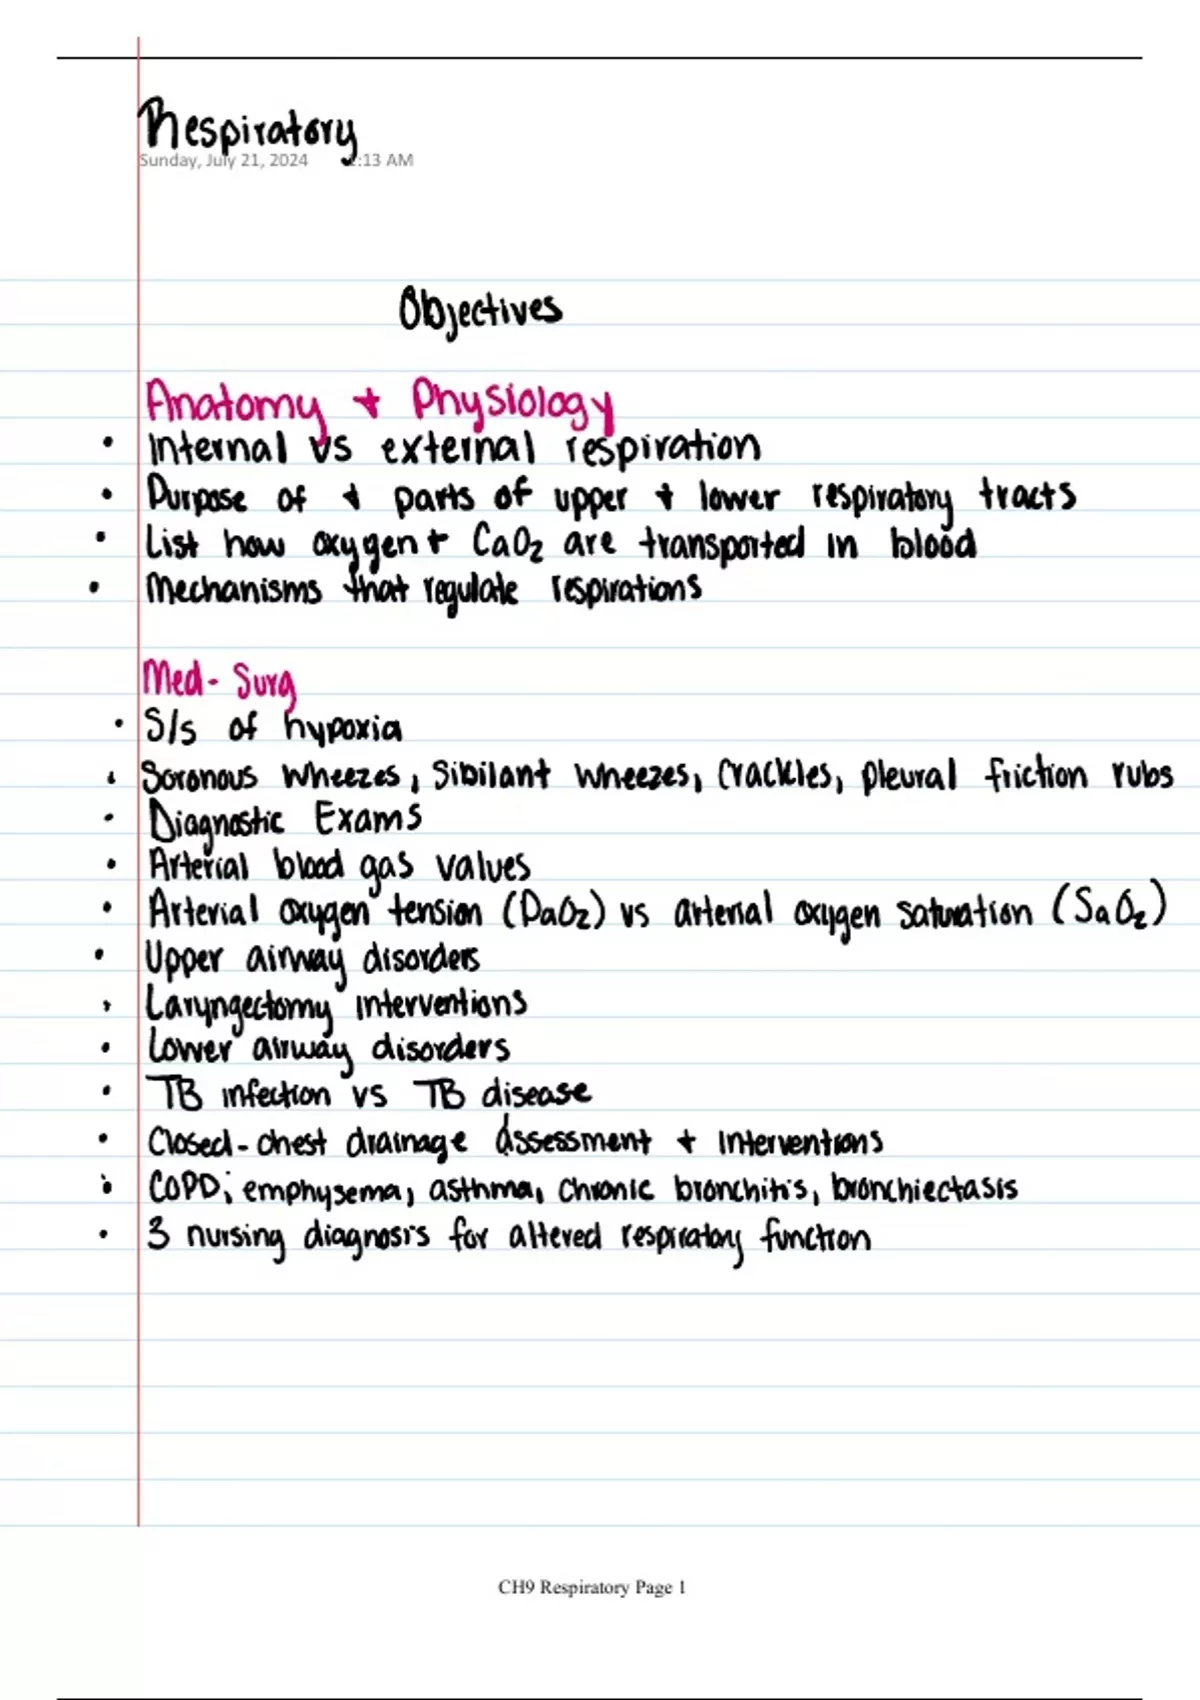 Respiratory
Sunday, July 21, 2024 :13 AM
Objectives
Anatomy + Physiology
• Internal vs external respiration
• Purpose of + parts of upper + lower respiratory tracts
• List how oxygen + CaO₂ are transported in blood
• Mechanisms that regulate respirations
Med-Surg
• S/s of hypoxia
• Soronous wheezes, Sibilant wheezes, Crackles, pleural friction rubs
• Diagnostic Exams
• Arterial blood gas values
• Arterial oxygen tension (PaO₂) vs arterial oxygen saturation (SaO₂)
• Upper airway disorders
• Laryngectomy interventions
• Lower airway disorders
• TB infection vs TB disease
• Closed-chest drainage Assessment + Interventions
• COPD; emphysema, asthma, chronic bronchitis, bronchiectasis
• 3 nursing diagnosis for altered respiratory function
CH9 Respiratory Page 1